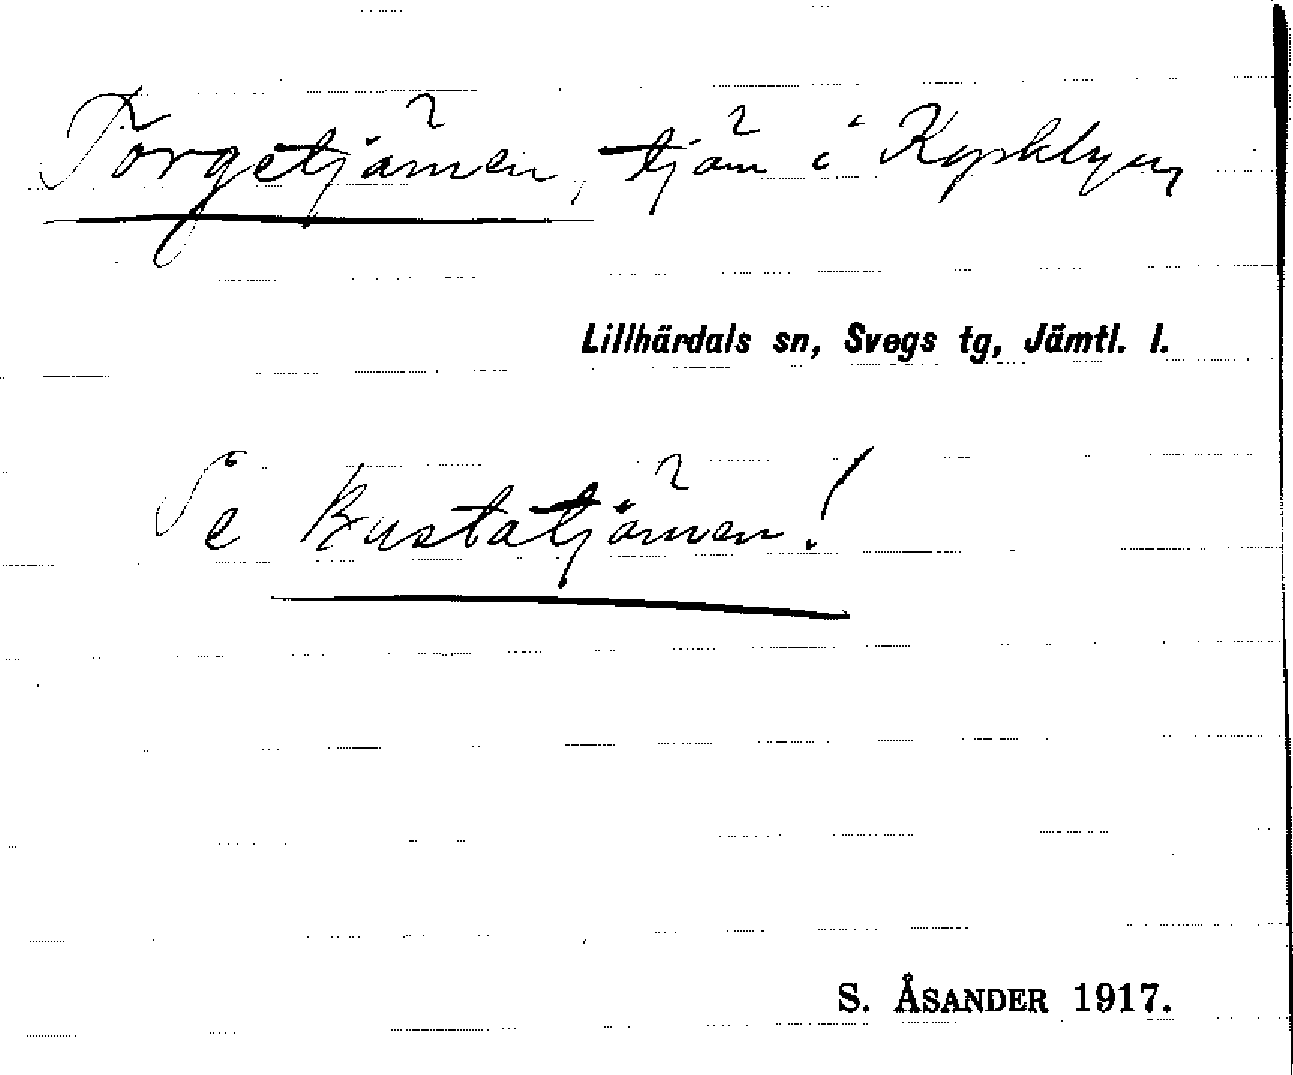 Torgetjärnen, tjärn i Kopklyen
Lillhärdals sn, Svegs tg, Jämtl. l.
Se Kustatjärnen!
S. ÅSANDER 1917.